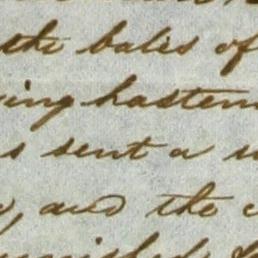 the bales of
ing hasten
s sent a
, and the